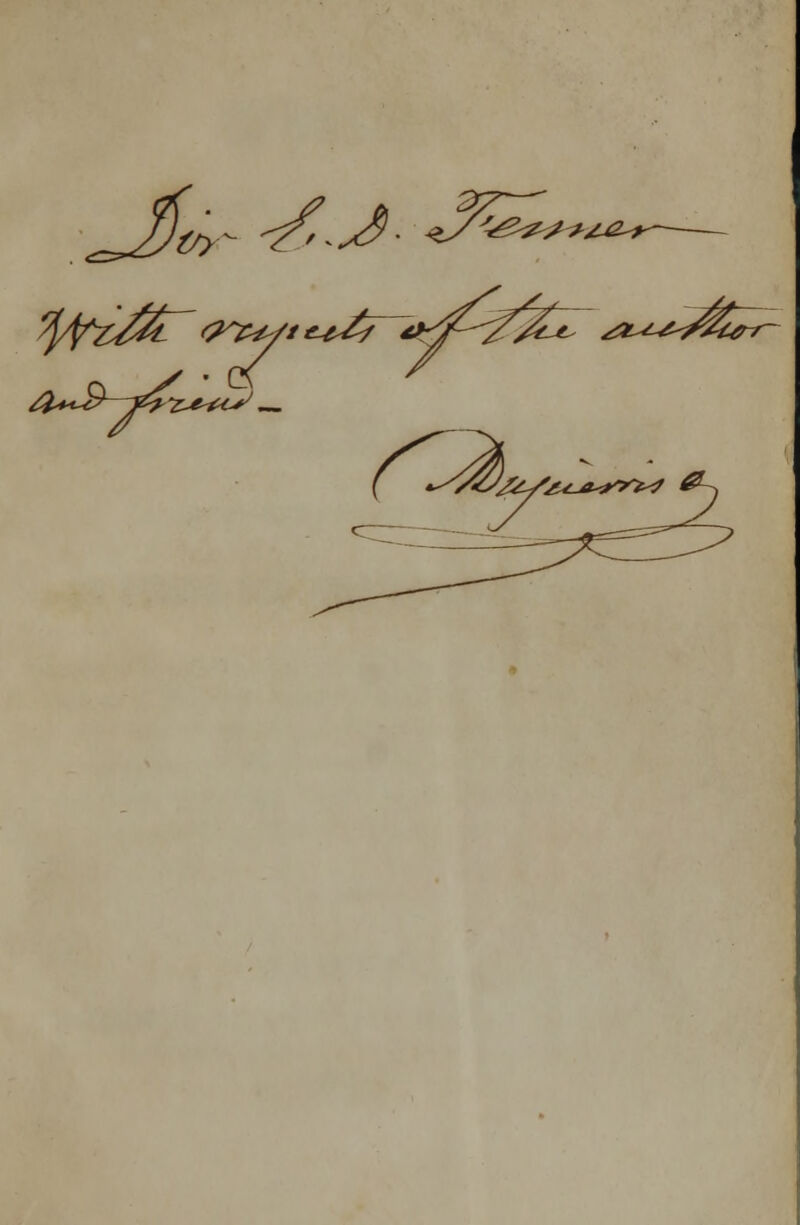 Dor E. D. Fenner
With respects of the author
and friend